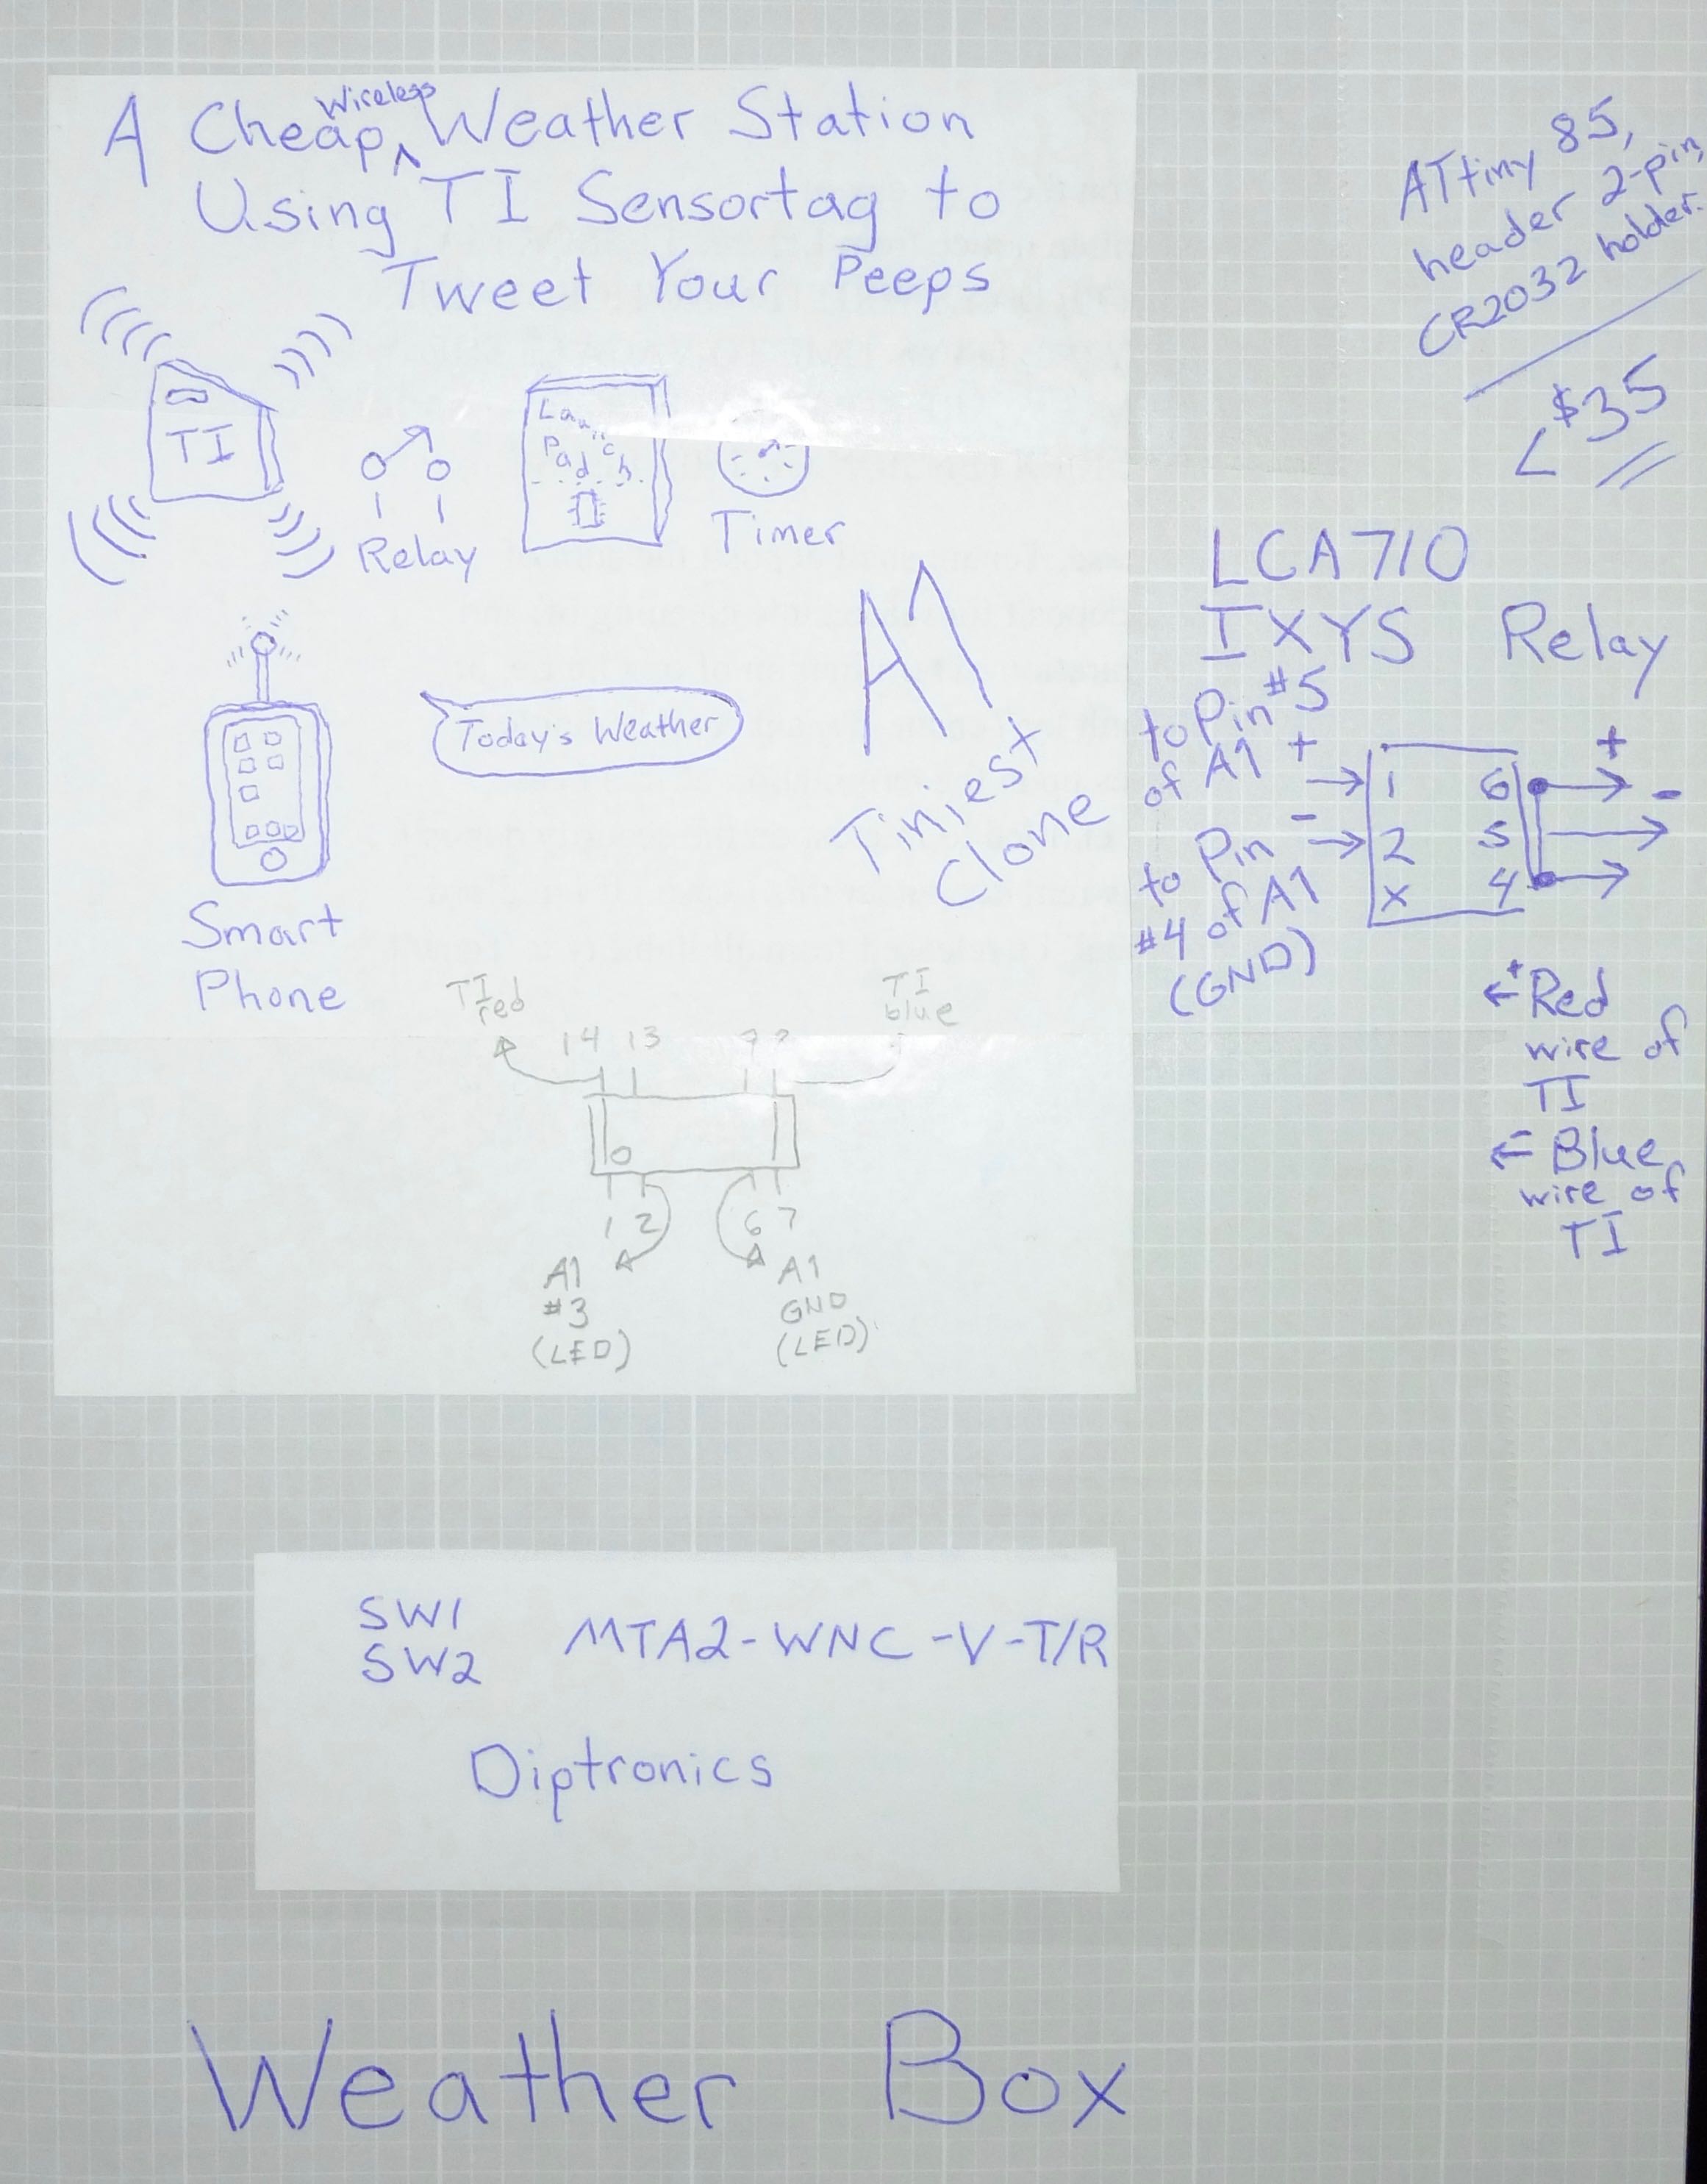 A Cheap Wireless Weather Station
Using TI Sensortag to
Tweet Your Peeps
TI
Relay
Launch
Pad
Timer
Smart
Phone
Today's Weather
A1
Tiniest
Clone
TI
red
TI
blue
14 13
1 2
6 7
A1
#3
(LED)
A1
GND
(LED)
ATtiny 85,
header 2-pin,
CR2032 holder.
< $35
LCA710
IXYS Relay
to Pin #5
of A1 +
to Pin -
#4 of A1
(GND)
1 6
2 5
X 4
+
-
←+ Red
wire of
TI
←- Blue
wire of
TI
SW1
SW2
MTA2-WNC-V-T/R
Diptronics
Weather Box